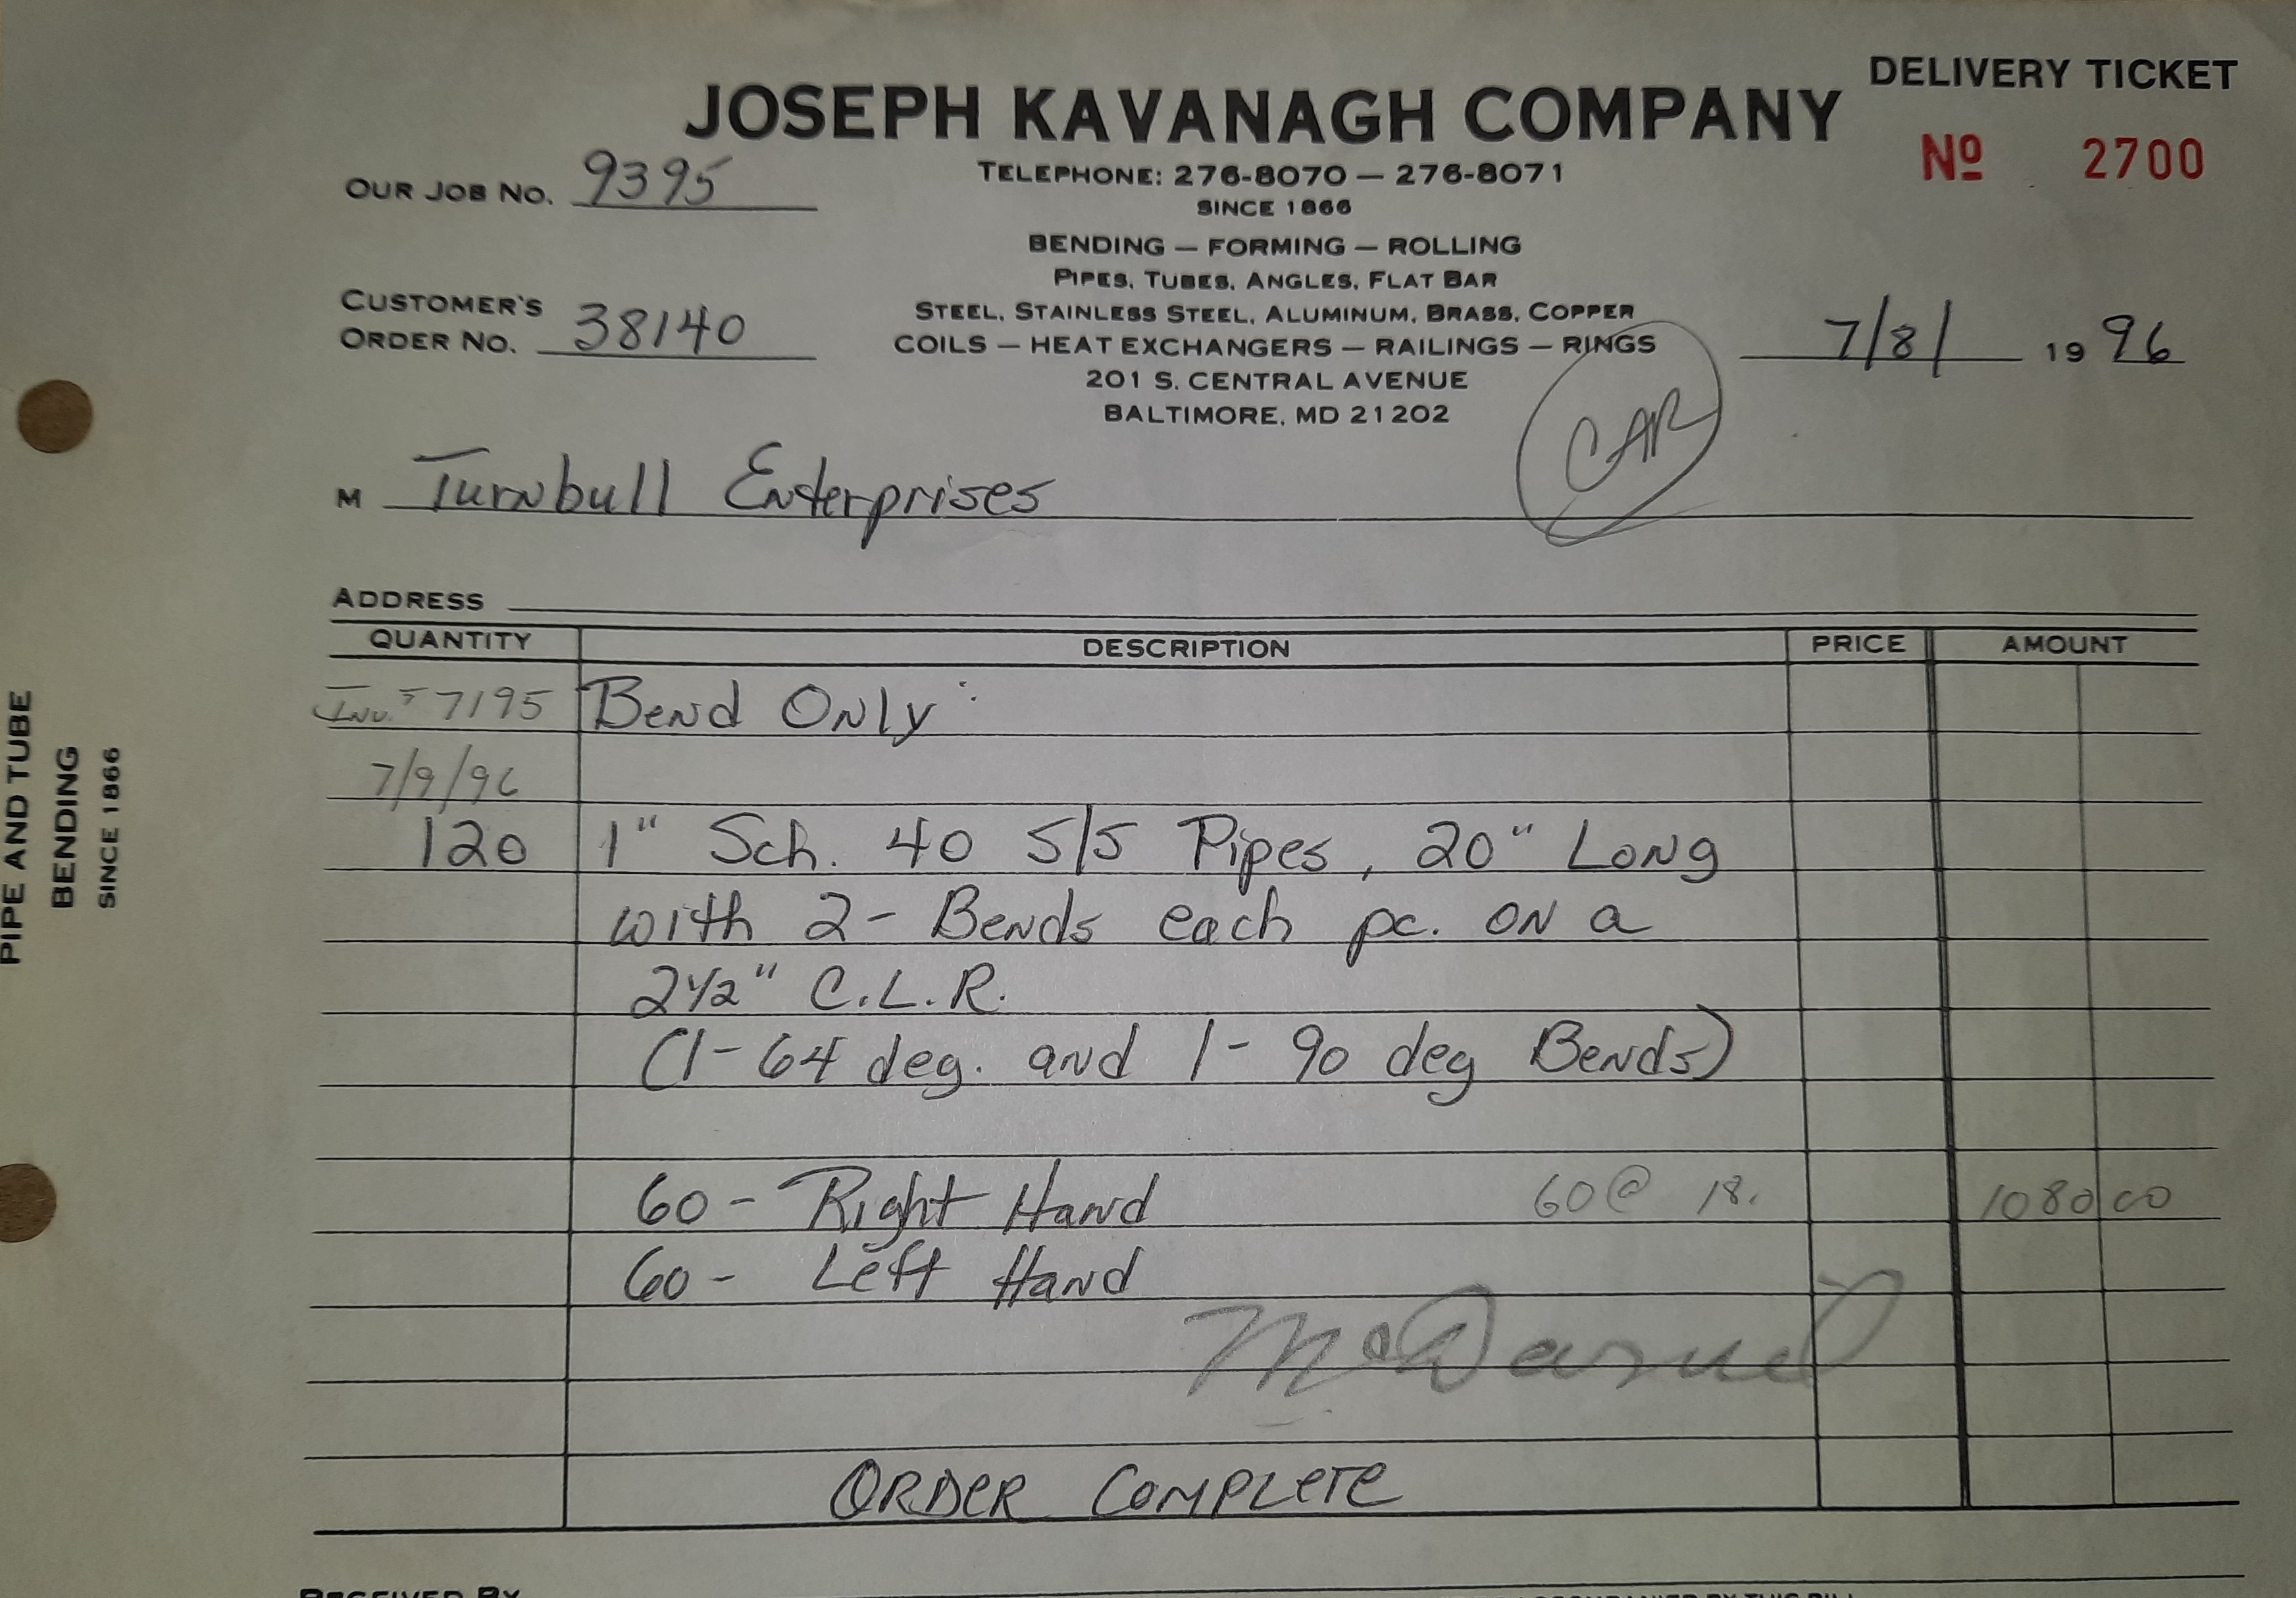 DELIVERY TICKET
JOSEPH KAVANAGH COMPANY
Nº 2700
OUR JOB NO. 9395
TELEPHONE: 276-8070 — 276-8071
SINCE 1866
BENDING — FORMING — ROLLING
PIPES, TUBES, ANGLES, FLAT BAR
CUSTOMER'S
ORDER NO. 38140
STEEL, STAINLESS STEEL, ALUMINUM, BRASS, COPPER
COILS — HEAT EXCHANGERS — RAILINGS — RINGS
7/8/ 19 96
201 S. CENTRAL AVENUE
BALTIMORE, MD 21202
CAR
M Turnbull Enterprises
ADDRESS
QUANTITY DESCRIPTION PRICE AMOUNT
Inv. # 7195 Bend Only:
7/9/96
120 1" Sch. 40 S/S Pipes, 20" Long
with 2- Bends each pc. on a
2 1/2" C.L.R.
(1- 64 deg. and 1- 90 deg Bends)
60 - Right Hand 60 @ 18. 1080 00
60 - Left Hand
ORDER COMPLETE
RECEIVED BY
ACCOMPANIED BY THIS BILL
PIPE AND TUBE
BENDING
SINCE 1866